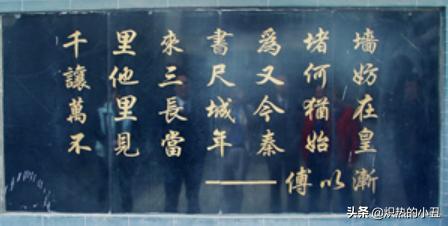 千里來書爲堵墙
讓他三尺又何妨
萬里長城今猶在
不見當年秦始皇
——傅以漸
头条 @炽热的小丑